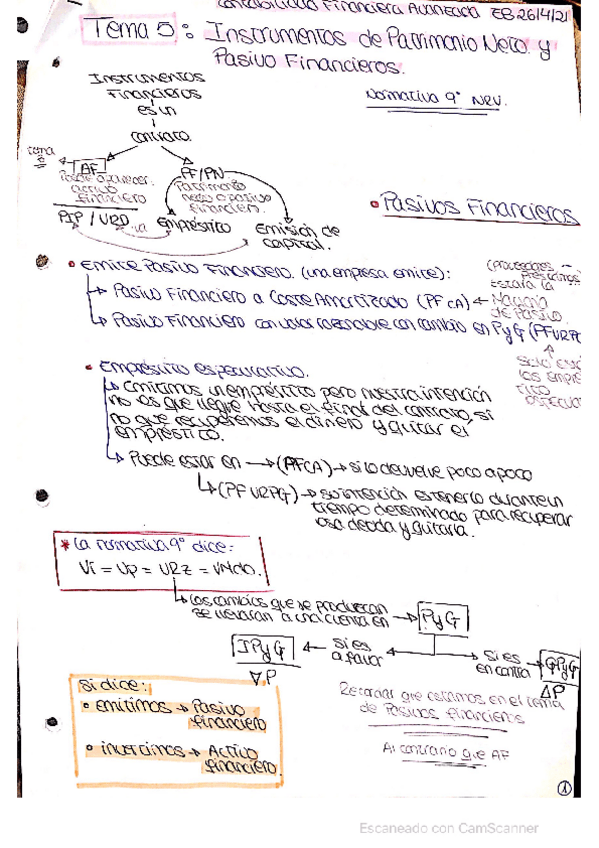 Contabilidad Financiera Avanzada EB 26/4/21
Tema 5: Instrumentos de Patrimonio Neto y
Pasivo Financieros.
Instrumentos
Financieros
es un
contrato.
Normativa 9ª NRV.
tema
AF
PF/PN
Puede aparecer
activo
financiero
Patrimonio
neto o pasivo
financiero.
PIP / VRD
Empréstito
Emisión de
capital.
• Pasivos Financieros
• Emite Pasivo Financiero. (una empresa emite):
→ Pasivo Financiero a Coste Amortizado (PFCA) ←
→ Pasivo Financiero con valor razonable con cambio en PyG (PFVRPG
(Proveedores
estaría la
Mayoría
de Pasivo.
Solo
los empré
tito
especula
• Empréstito especulativo.
→ Emitimos un empréstito pero nuestra intención
no es que llegue hasta el final del contrato, si
no que recuperemos el dinero y quitar el
empréstito.
→ Puede estar en → (PFCA) → si lo devuelve poco a poco
→ (PFVRPG) → su intención es tenerlo durante un
tiempo determinado para recuperar
esa deuda y quitarla.
* La normativa 9ª dice:
Vi = Vp = VRz = VMdo.
→ Los cambios que se produzcan
se llevarán a una cuenta en → PyG
IPyG ← Si es
a favor
Si es
en contra → GPyG
∇P
ΔP
Si dice:
• emitimos → Pasivo
financiero
• invertimos → Activo
financiero.
Recordar que estamos en el tema
de Pasivos financieros
Al contrario que AF
1
Escaneado con CamScanner